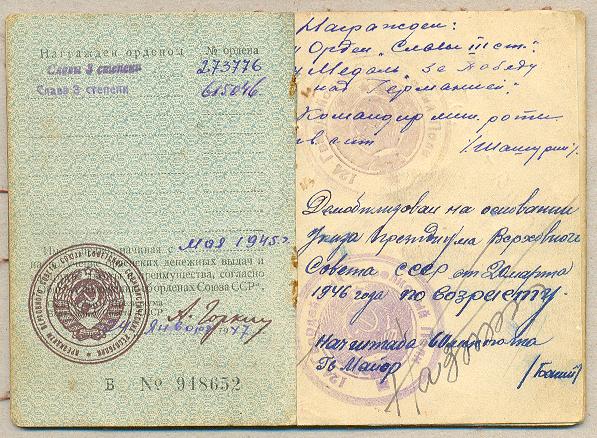 Награжден орденом № ордена
Славы 3 степени 273776
Слава 3 степени 615046
начиная с мая 1945 г.
денежных выдач и
преимущества, согласно
орденах Союза ССР".
А. Горкин
января 1947
В № 948652
Награжден:
Орден „Славы III ст."
Медаль „За победу
над Германией."
Командир мин. роты
в. с-т
Демобилизован на основании
Указа Президиума Верховного
Совета СССР от 20 марта
1946 года по возрасту.
Нач штаба
Гв. Майор